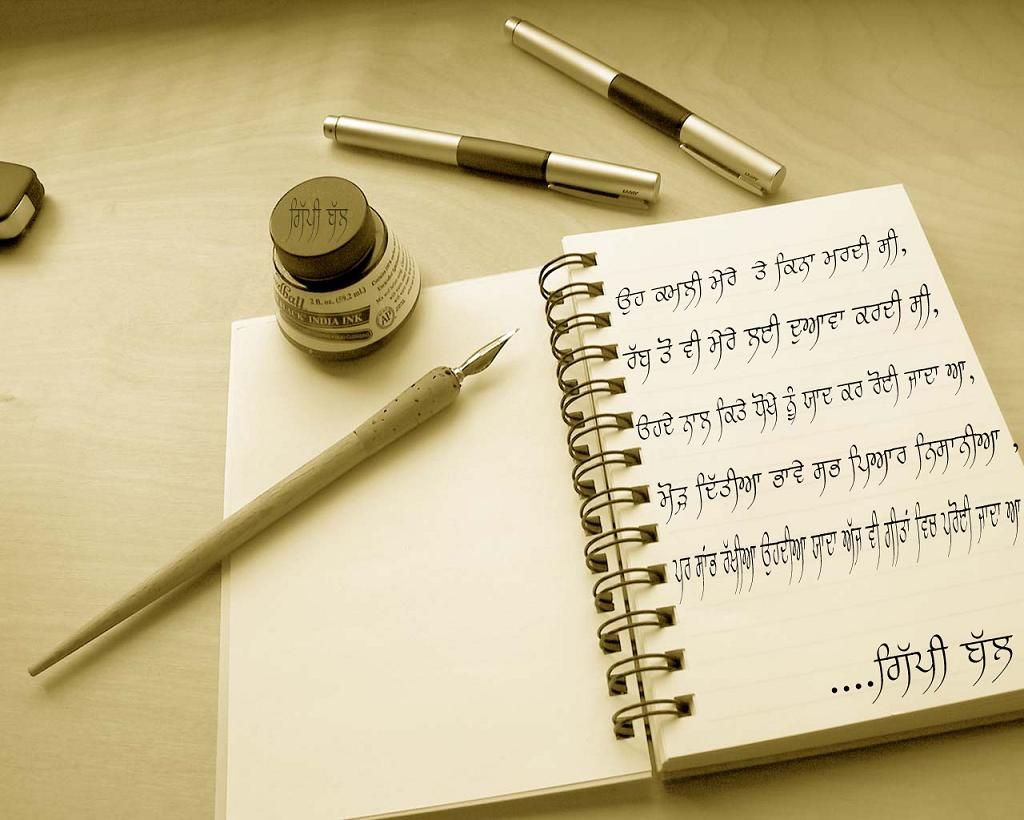 ਗਿੱਪੀ ਬੱਲ
2 fl. oz. (59.2 mL)
BLACK INDIA INK
AP
ਓਹ ਕਮਲੀ ਮੇਰੇ ਤੇ ਕਿਨਾ ਮਰਦੀ ਸੀ,
ਰੱਬ ਤੋ ਵੀ ਮੇਰੇ ਲਈ ਦੁਆਵਾ ਕਰਦੀ ਸੀ,
ਓਹਦੇ ਨਾਲ ਕਿਤੇ ਧੋਖੇ ਨੂੰ ਯਾਦ ਕਰ ਰੋਈ ਜਾਦਾ ਆ,
ਮੋੜ ਦਿੱਤੀਆ ਭਾਵੇ ਸਭ ਪਿਆਰ ਨਿਸਾਨੀਆ ,
ਪਰ ਸਾਂਭ ਰੱਖੀਆ ਉਹਦੀਆ ਯਾਦਾ ਅੱਜ ਵੀ ਗੀਤਾਂ ਵਿਚ ਪਰੋਈ ਜਾਦਾ ਆ
....ਗਿੱਪੀ ਬੱਲ